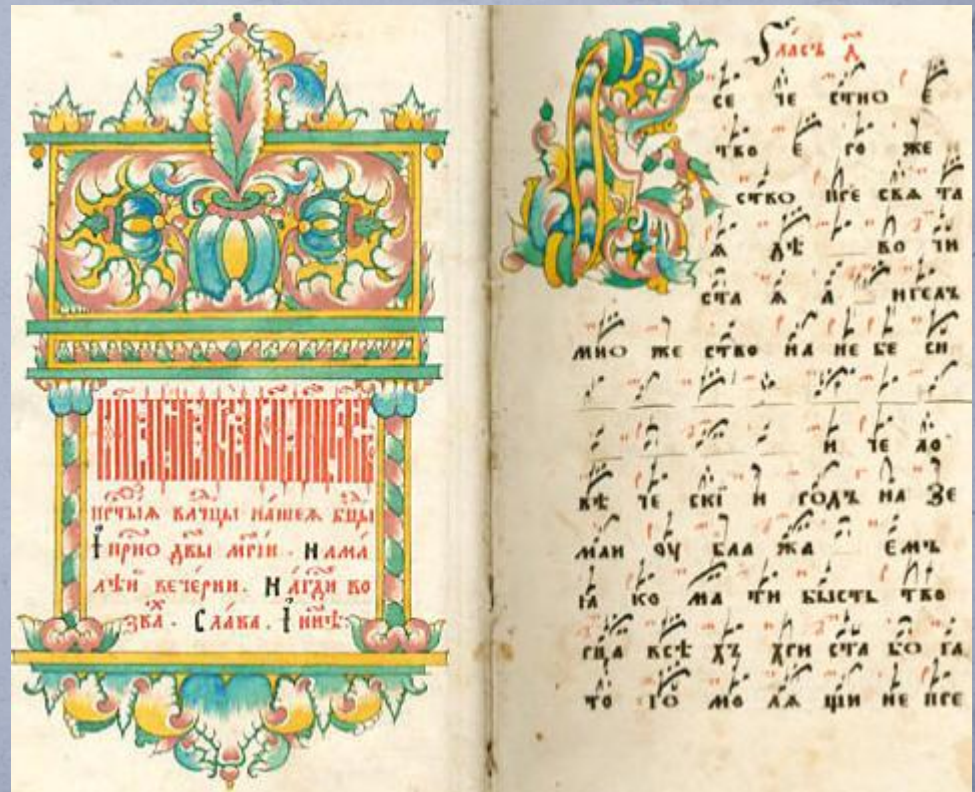 прⷱ҇тыѧ влⷣчцы нашеѧ бцⷣы
І прно дв҃ы мр҃іи. на ма
лѣи вечерни. На гдⷭ҇и во
зваⷯ. Слава. І ннѣ:
Гласъ
В се че стно е
тво е ро же
ство пре свѧ та
ѧ дѣ во чи
ста ѧ а нгелъ
мно же ство на не бе си
и че ло
вѣ че скі и родъ на зе
мли оу бла жа емъ
ꙗ ко ма ти бысть тво
рца всѣ хъ хри ста бо га
то го мо лѧ щи не пре